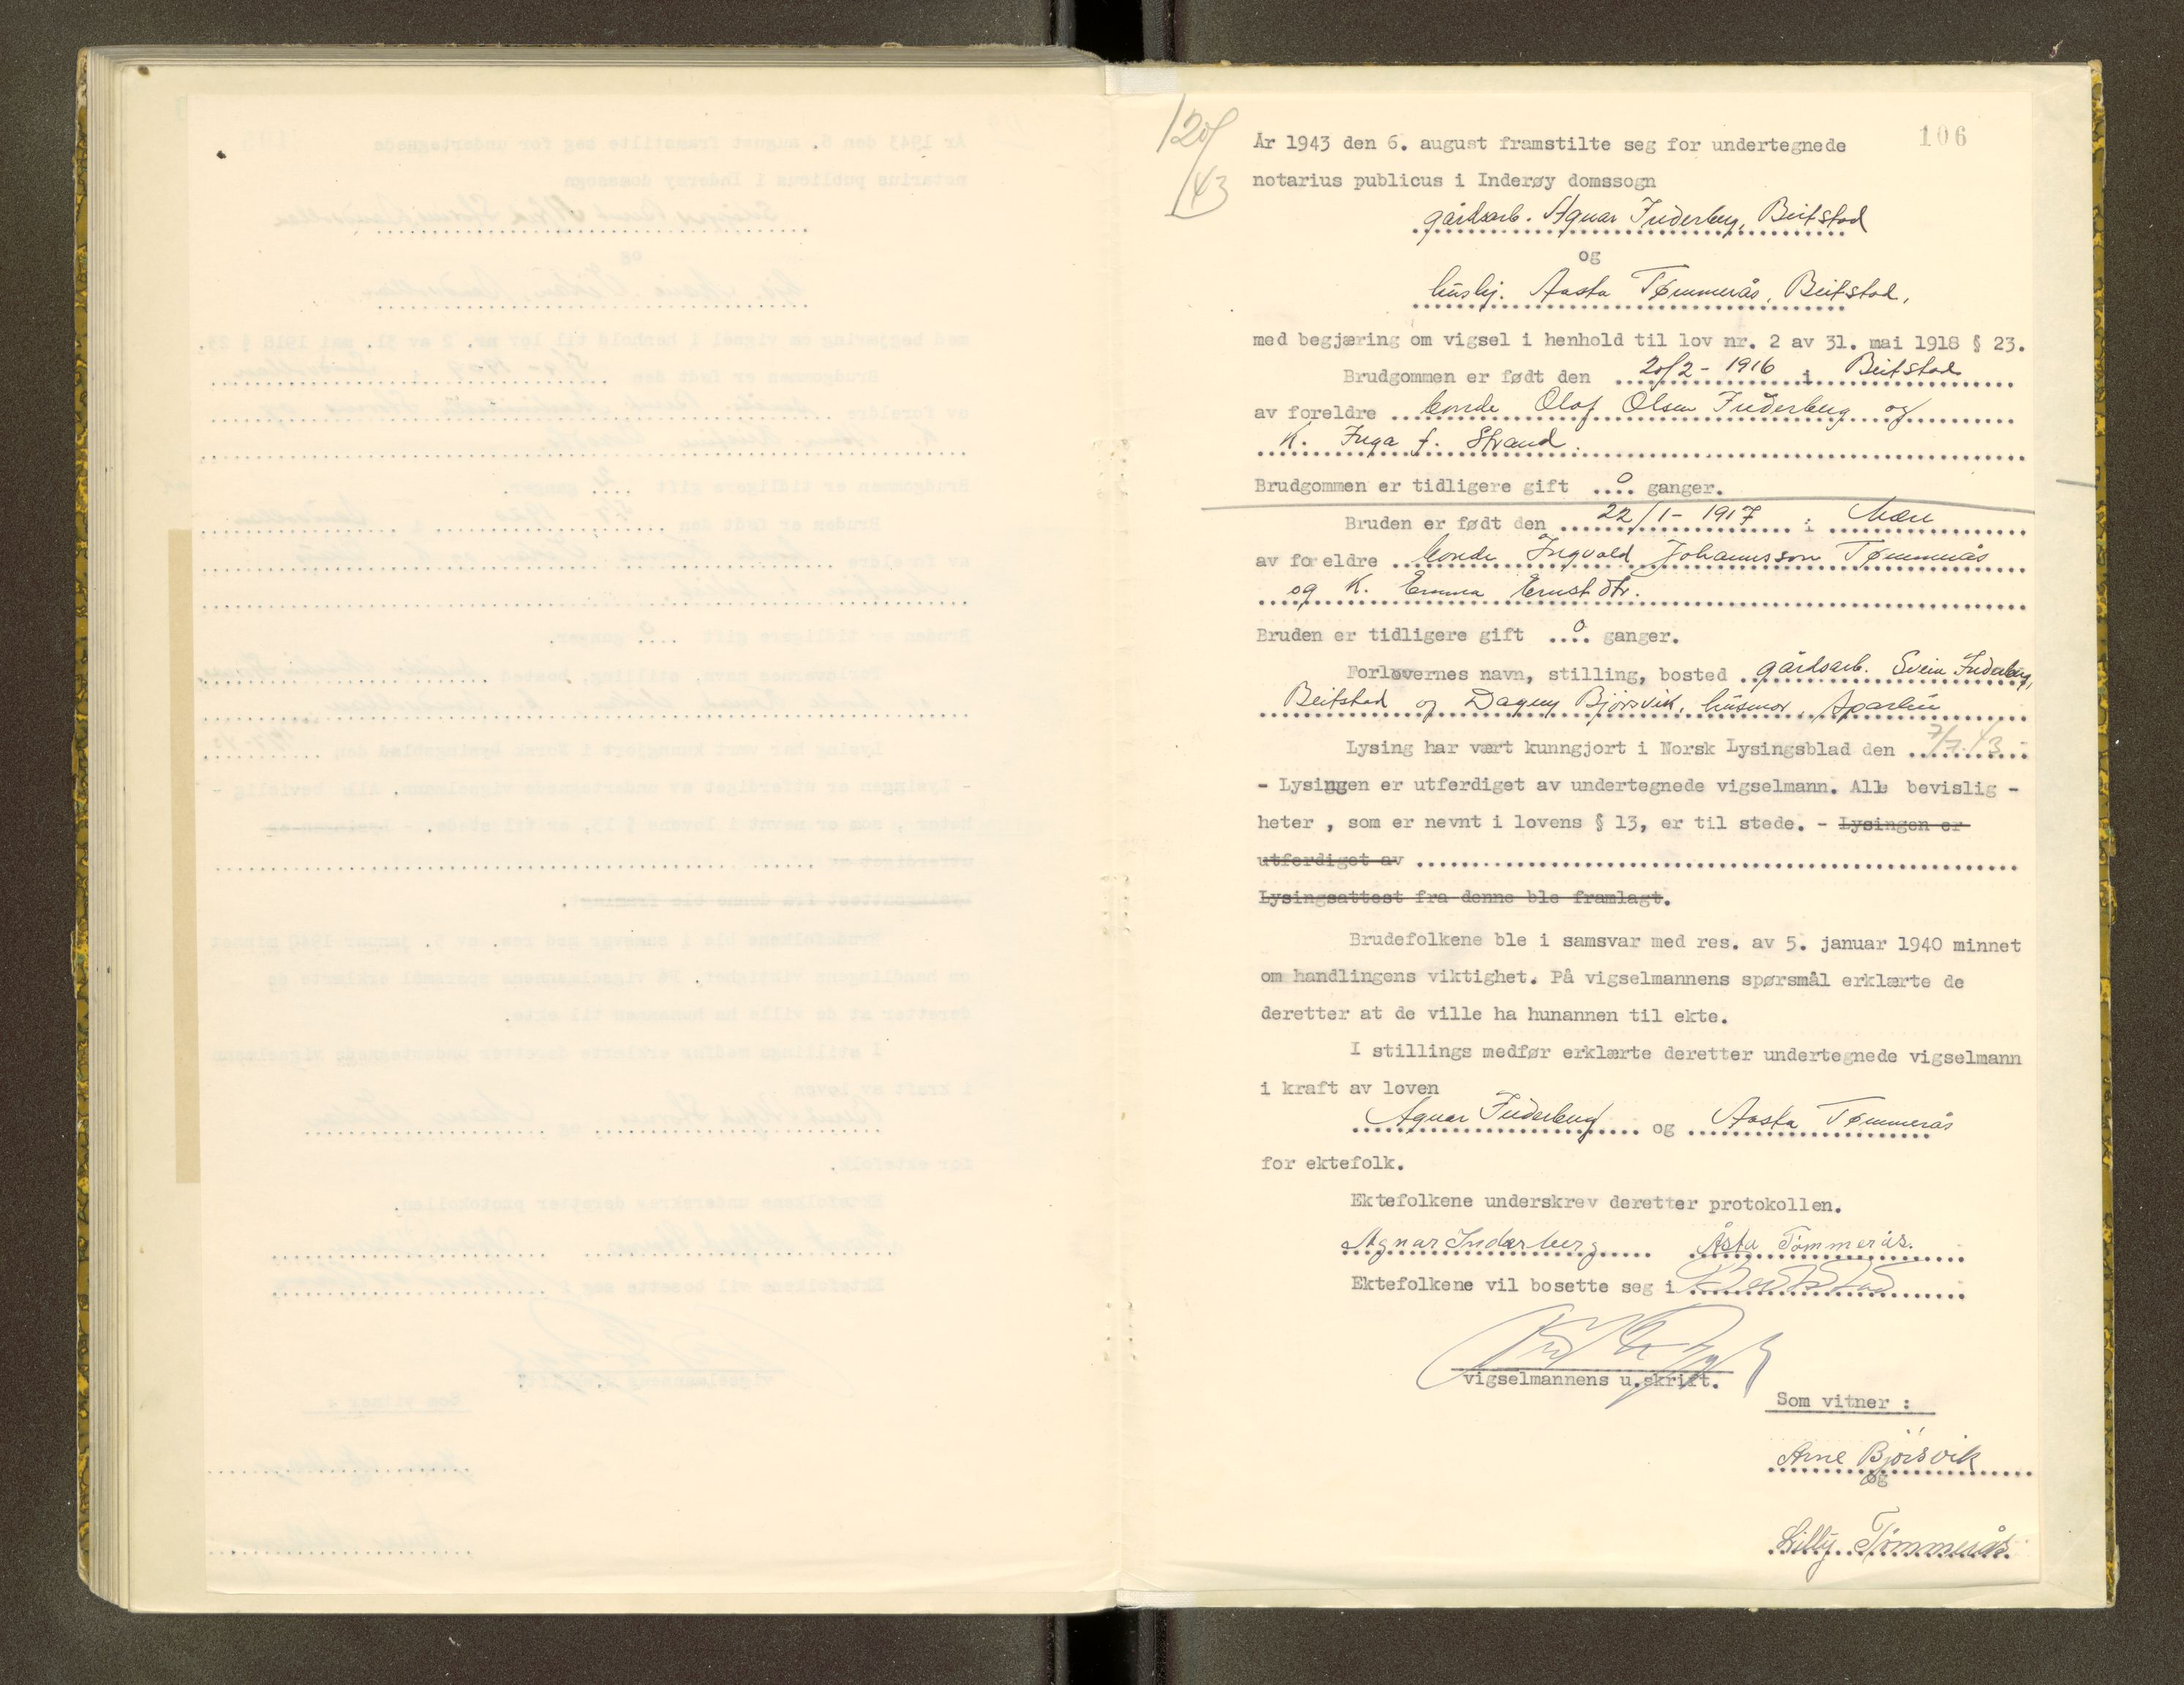 120/43
106
År 1943 den 6. august framstilte seg for undertegnede
notarius publicus i Inderøy domssogn
gårdsarb. Agnar Inderberg, Beitstad
og
hushj. Aasta Tømmerås, Beitstad,
med begjæring om vigsel i henhold til lov nr. 2 av 31. mai 1918 § 23.
Brudgommen er født den 20/2 - 1916 i Beitstad
av foreldre bonde Olaf Olsen Inderberg og
K. Inga f. Strand.
Brudgommen er tidligere gift 0 ganger.
Bruden er født den 22/1 - 1917 i
av foreldre bonde Ingvald Johannsson Tømmerås
og K. Emma Ernstdtr.
Bruden er tidligere gift 0 ganger.
Forlovernes navn, stilling, bosted gårdsarb. Svein Inderberg,
Beitstad og Dagny Bjørsvik, husmor, Sparbu
Lysing har vært kunngjort i Norsk Lysingsblad den 7/7.43
- Lysingen er utferdiget av undertegnede vigselmann. Alle bevislig -
heter , som er nevnt i lovens § 13, er til stede. - Lysingen er
utferdiget av
Lysingsattest fra denne ble framlagt.
Brudefolkene ble i samsvar med res. av 5. januar 1940 minnet
om handlingens viktighet. På vigselmannens spørsmål erklærte de
deretter at de ville ha hunannen til ekte.
I stillings medfør erklærte deretter undertegnede vigselmann
i kraft av loven
Agnar Inderberg og Aasta Tømmerås
for ektefolk.
Ektefolkene underskrev deretter protokollen.
Agnar Inderberg Åsta Tømmerås.
Ektefolkene vil bosette seg i Beitstad
vigselmannens u.skrift.
Som vitner :
Arne Bjørsvik
og
Lilly Tømmerås.